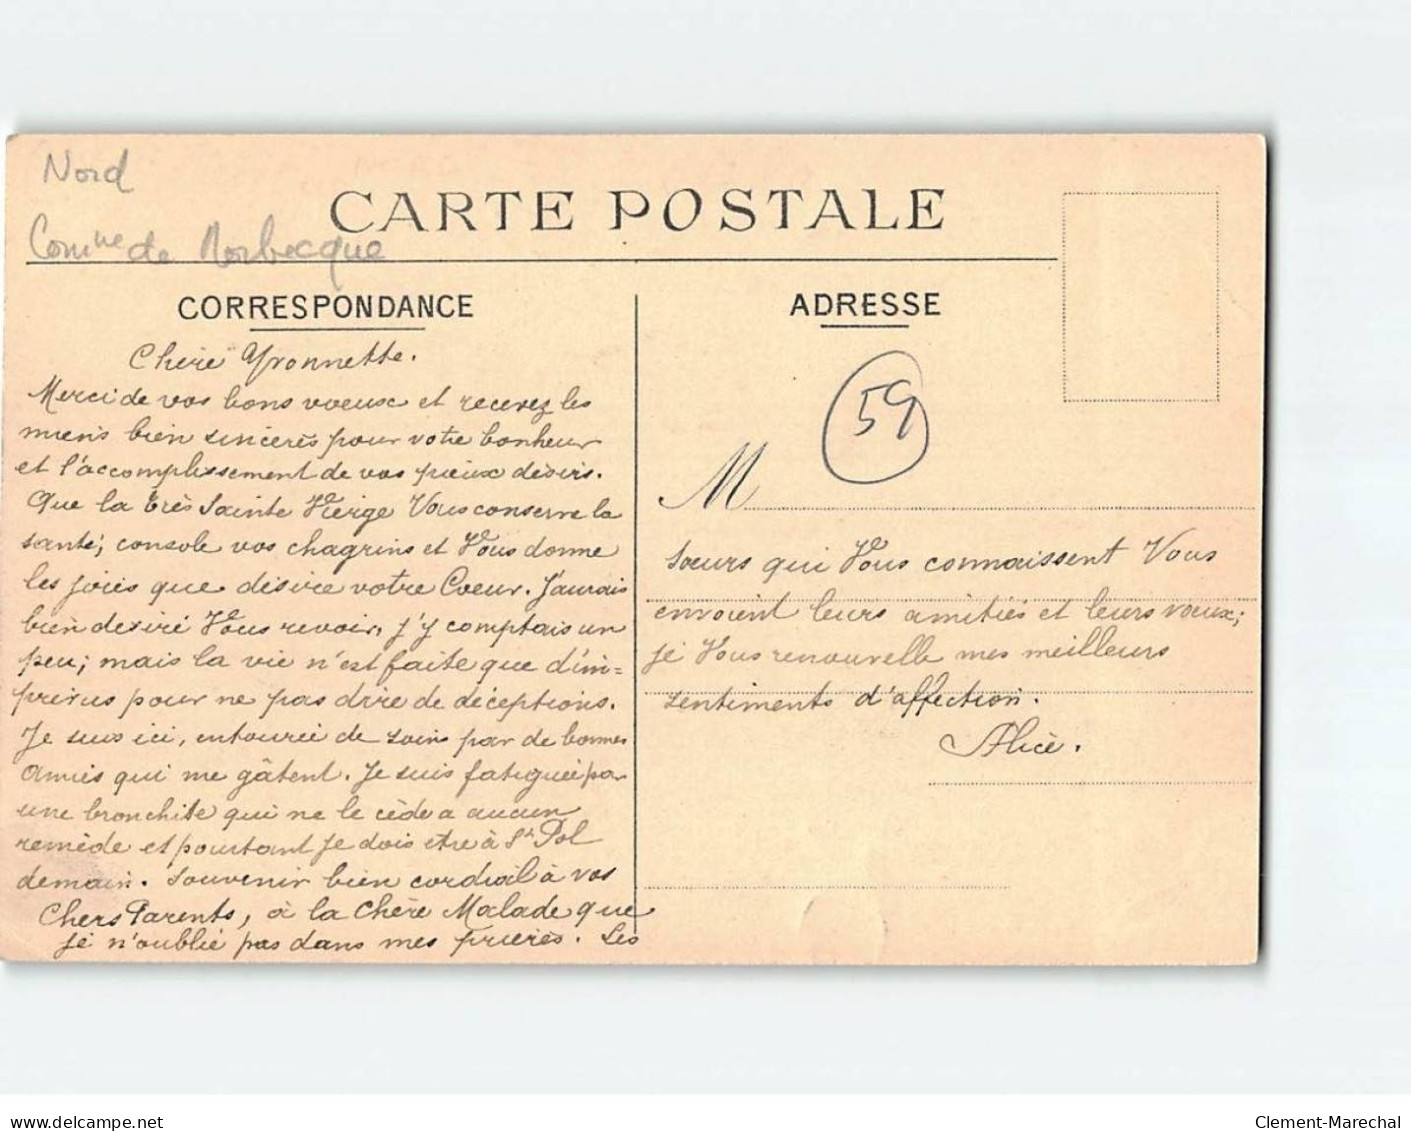 Nord
Com^ne de Morbecque
CARTE POSTALE
CORRESPONDANCE
Chère Yvonnette.
Merci de vos bons voeux et recevez les
miens bien sincères pour votre bonheur
et l'accomplissement de vos pieux désirs.
Que la très Sainte Vierge Vous conserve la
santé; console vos chagrins et Vous donne
les joies que désire votre Coeur. J'aurais
bien désiré Vous revoir, j'y comptais un
peu; mais la vie n'est faite que d'im=
prévus pour ne pas dire de déceptions.
Je suis ici, entourée de soins par de bonnes
amies qui me gâtent. Je suis fatiguée par
une bronchite qui ne le cède a aucun
remède et pourtant je dois être à St Pol
demain. Souvenir bien cordial à vos
Chers Parents, à la chère Malade que
je n'oublie pas dans mes prières. Les
ADRESSE
59
M
soeurs qui Vous connaissent Vous
envoient leurs amitiés et leurs voeux;
je Vous renouvelle mes meilleurs
sentiments d'affection.
Alice.
www.delcampe.net
Clement-Marechal